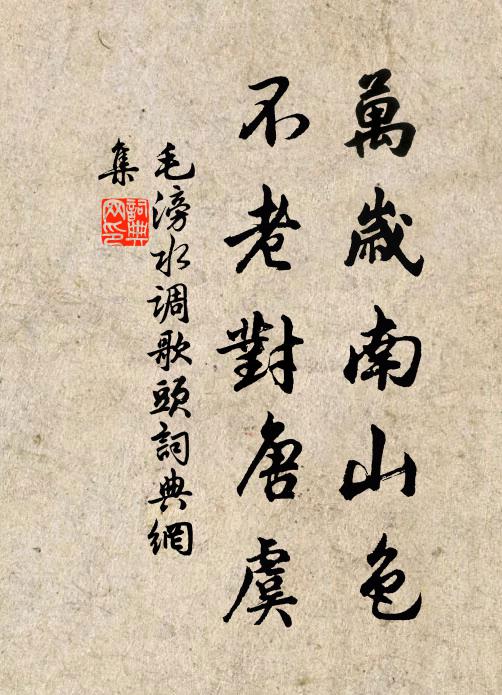 萬歲南山色
不老對唐虞
毛滂水调歌頭詞典網
集
詞典網印